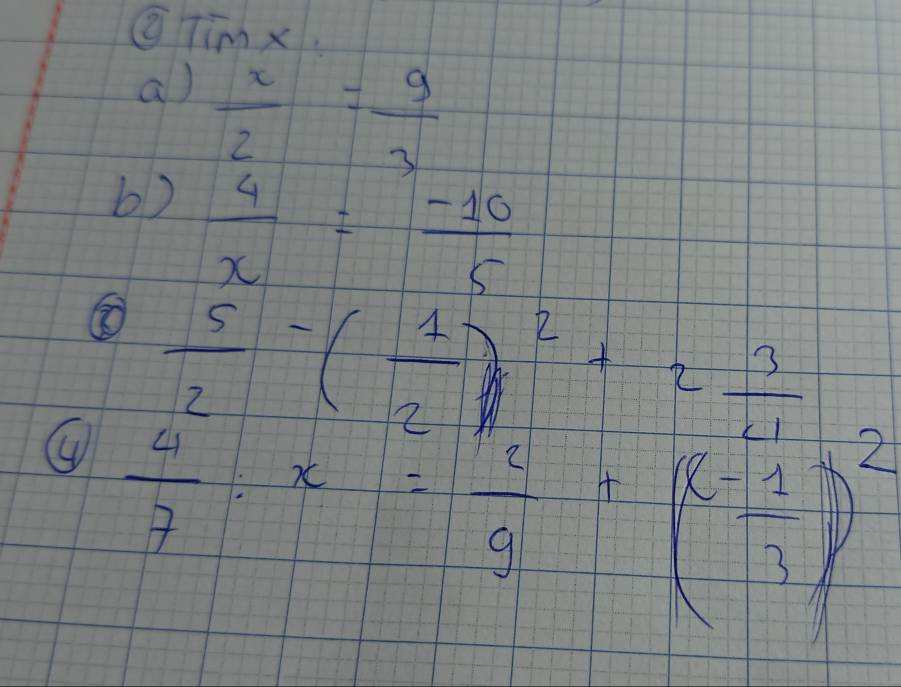 ② Tìm x.
a) x/2 = 9/3
b) 4/x = -10/5
③ 5/2 - (1/2)² + 2 3/4
④ 4/7 : x = 2/9 + (-1/3)²